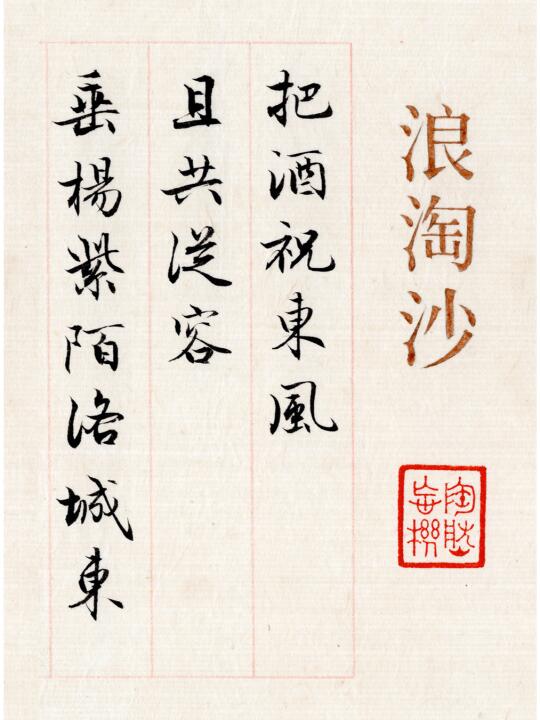 浪淘沙
陶然
忘機
把酒祝東風
且共從容
垂楊紫陌洛城東